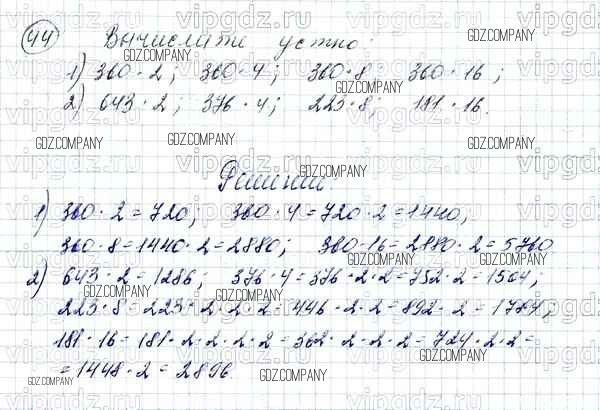 44 Вычислите устно:
1) 360 · 2; 360 · 4; 360 · 8; 360 · 16;
2) 643 · 2; 376 · 4; 223 · 8; 181 · 16.
Решение:
1) 360 · 2 = 720; 360 · 4 = 720 · 2 = 1440;
360 · 8 = 1440 · 2 = 2880; 360 · 16 = 2880 · 2 = 5760
2) 643 · 2 = 1286; 376 · 4 = 376 · 2 · 2 = 752 · 2 = 1504;
223 · 8 = 223 · 2 · 2 · 2 = 446 · 2 · 2 = 892 · 2 = 1784;
181 · 16 = 181 · 2 · 2 · 2 · 2 = 362 · 2 · 2 · 2 = 724 · 2 · 2 =
= 1448 · 2 = 2896.